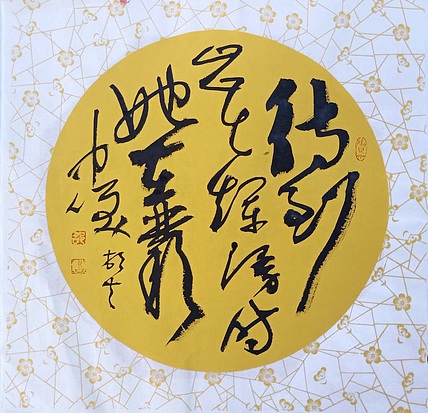 待到
山花爛漫时
她在叢
中笑